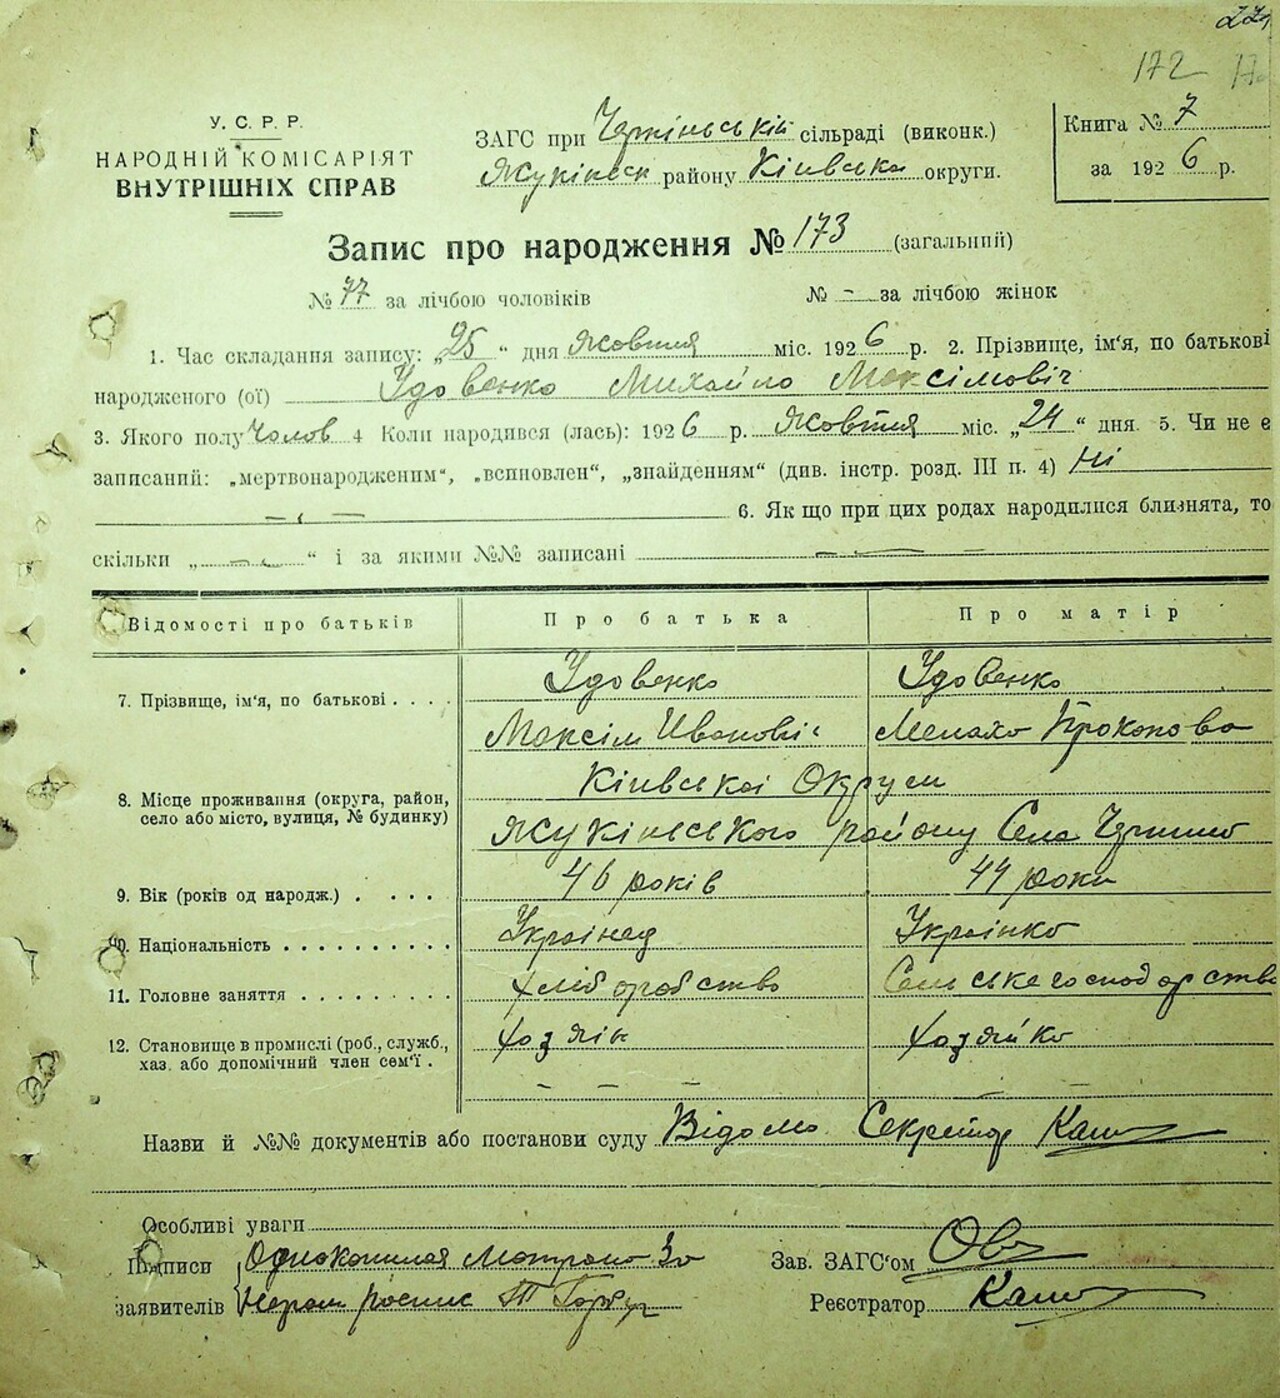 172
У. С. Р. Р.
НАРОДНІЙ КОМІСАРІЯТ
ВНУТРІШНІХ СПРАВ
ЗАГС при Чернінській сільраді (виконк.)
Жукінськ району Київська округи.
Книга № 7
за 1926 р.
Запис про народження № 173 (загальний)
№ 77 за лічбою чоловіків № - за лічбою жінок
1. Час складання запису: „25“ дня Жовтня міс. 1926 р. 2. Прізвище, ім'я, по батькові
народженого (ої) Удовенко Михайло Максімовіч
3. Якого полу Чолов 4 Коли народився (лась): 1926 р. Жовтня міс. „24“ дня. 5. Чи не є
записаний: „мертвонародженим“, „всиновлен“, „знайденням“ (див. інстр. розд. III п. 4) Ні
6. Як що при цих родах народилися близнята, то
скільки „ “ і за якими №№ записані
Відомості про батьків Про батька Про матір
7. Прізвище, ім'я, по батькові . . . . Удовенко Удовенко
Максім Ивановіч Прокопова
8. Місце проживання (округа, район, село або місто, вулиця, № будинку) Київської Округи
Жукінського району Села Чернино
9. Вік (років од народж.) . . . . 46 років 44 роки
10. Національність . . . . . . . . . . Украінец Украінка
11. Головне заняття . . . . . . . . . Хліборобство Сельське господарство
12. Становище в промислі (роб., служб., хаз. або допомічний член сем'ї . Хозяін Хозяйка
Назви й №№ документів або постанови суду Відомо Секретар
Особливі уваги
Підписи Мотрона За Зав. ЗАГС'ом
заявителів Неграм роспис Реєстратор